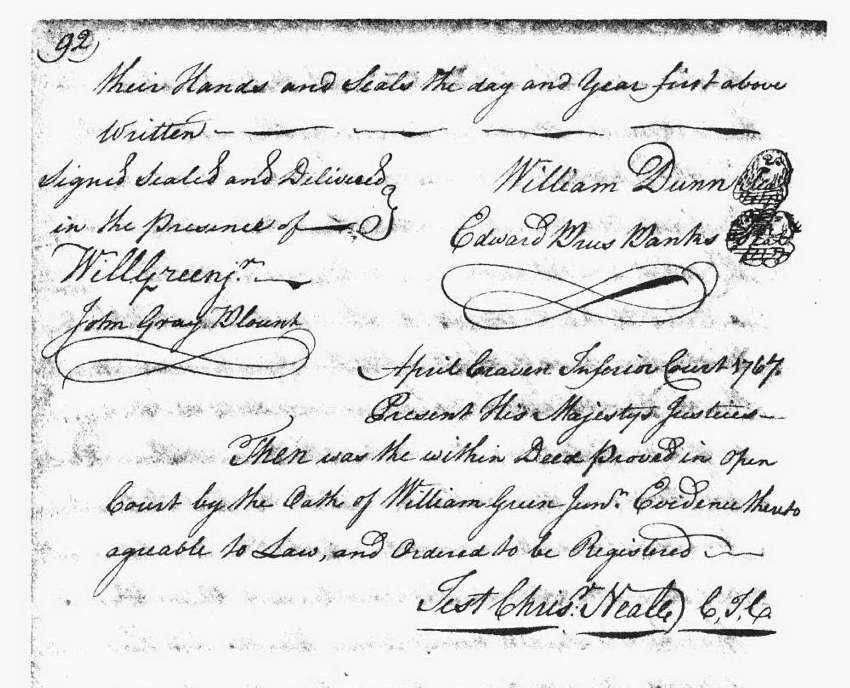 92
their Hands and Seals the day and Year first above
Written
Signed Sealed and Delivered
in the Presence of
Will Green jr.
John Gray Blount
William Dunn Seal
Edward Brus Banks Seal
April Craven Inferior Court 1767.
Present His Majestys Justices
Then was the within Deed proved in open
Court by the Oath of William Green Junr. Evidence thereto
agreable to Law, and Ordered to be Registered
Test Chrisr. Neale C, I, C